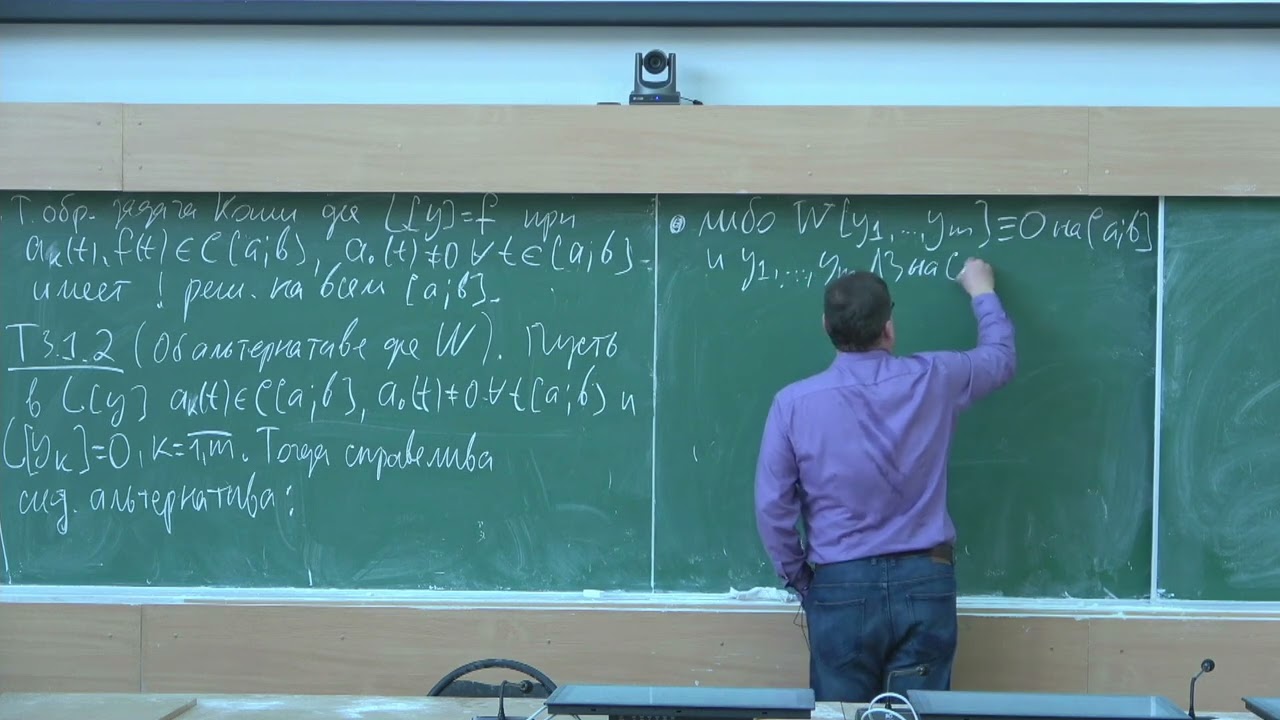 Т. обр. задача Коши для L[y]=f при
aₖ(t), f(t)∈C[a;b], a₀(t)≠0 ∀t∈[a;b]
имеет ! реш. на всем [a;b].
Т 3.1.2 (Об альтернативе для W). Пусть
в L[y] aₖ(t)∈C[a;b], a₀(t)≠0 ∀t[a;b] и
L[yₖ]=0, k=1,m. Тогда справелива
след. альтернатива:
либо W[y₁,...,yₘ]≡0 на [a;b]
и y₁,...,yₘ ЛЗ на [